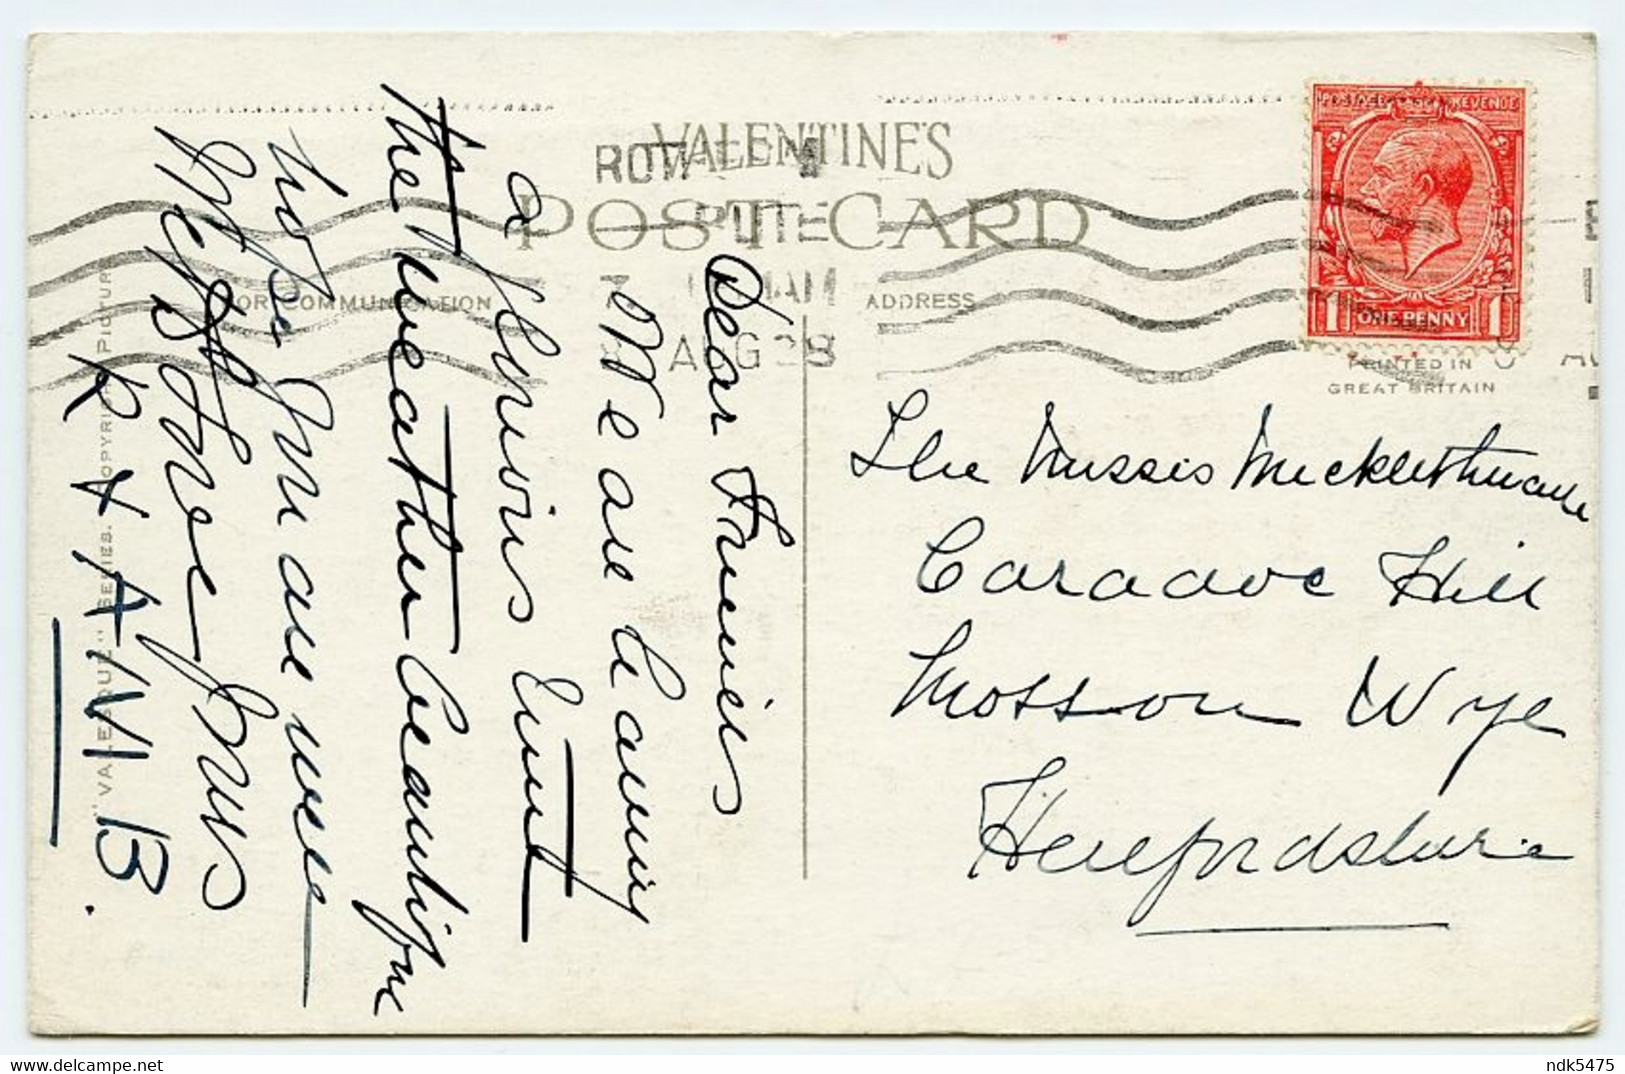 VALENTINE'S
POST CARD
FOR COMMUNICATION
ADDRESS
ROTHESAY
BUTE
AM
AUG 28
POSTAGE REVENUE
1 ONE PENNY 1
PRINTED IN
GREAT BRITAIN
"VALESQUE" SERIES. COPYRIGHT PICTURE
Dear Friends
We are having
a glorious time
the weather beautiful
hope you are well
Love from us
R & A M B.
The Misses Micklethwaite
Caradoc Hill
Ross on Wye
Herefordshire
ndk5475